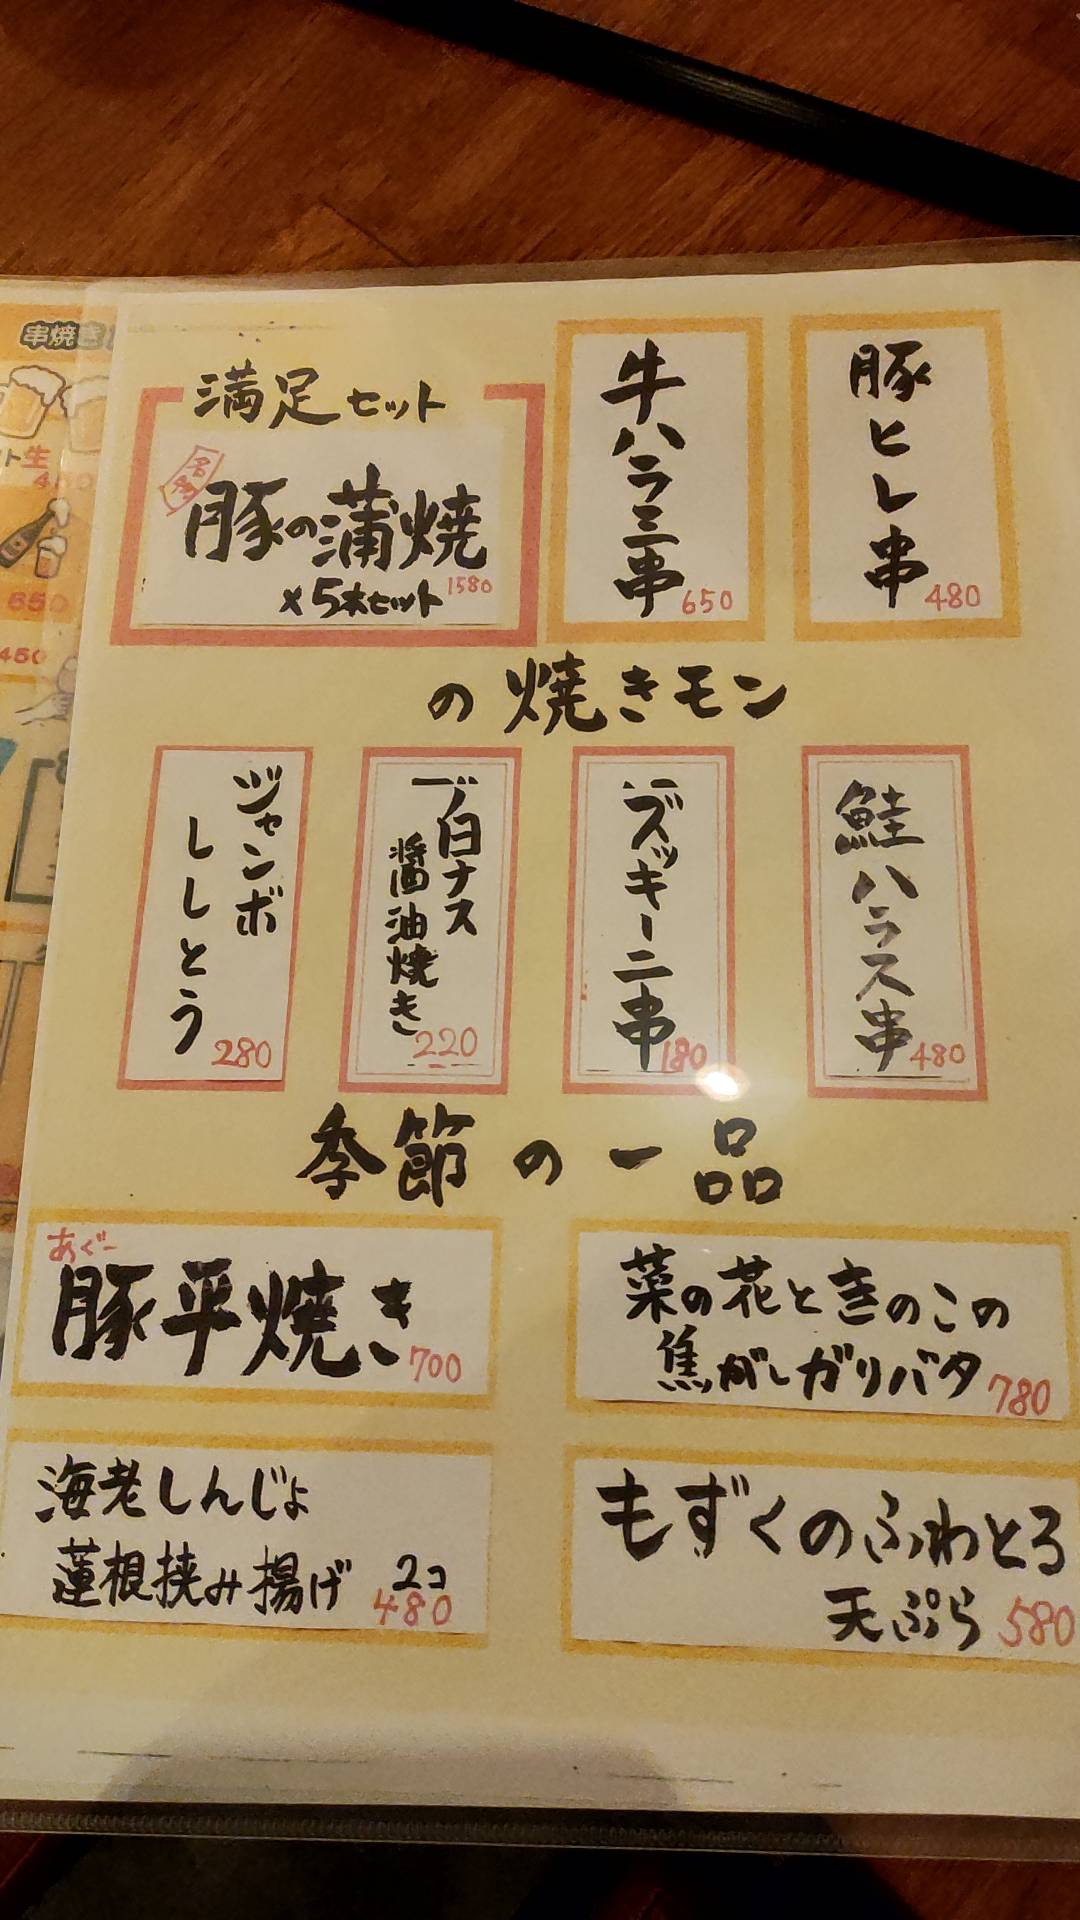 串焼き
生
650
450
満足セット
名物
豚の蒲焼
×5本セット 1580
牛ハラミ串
650
豚ヒレ串
480
の焼きモン
ジャンボ
ししとう
280
白ナス
醤油焼き
220
ズッキーニ串
180
鮭ハラス串
480
季節の一品
あぐー
豚平焼き
700
菜の花ときのこの
焦がしガリバタ
780
海老しんじょ
蓮根挟み揚げ 2コ
480
もずくのふわとろ
天ぷら 580